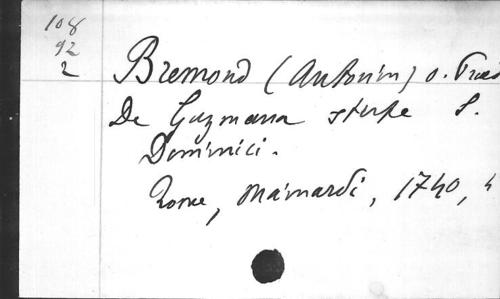 108
92
2
Bremond (Antonin) o. Praed
De Guzmana stirpe S.
Dominici.
Rome, Mainardi, 1740, 4